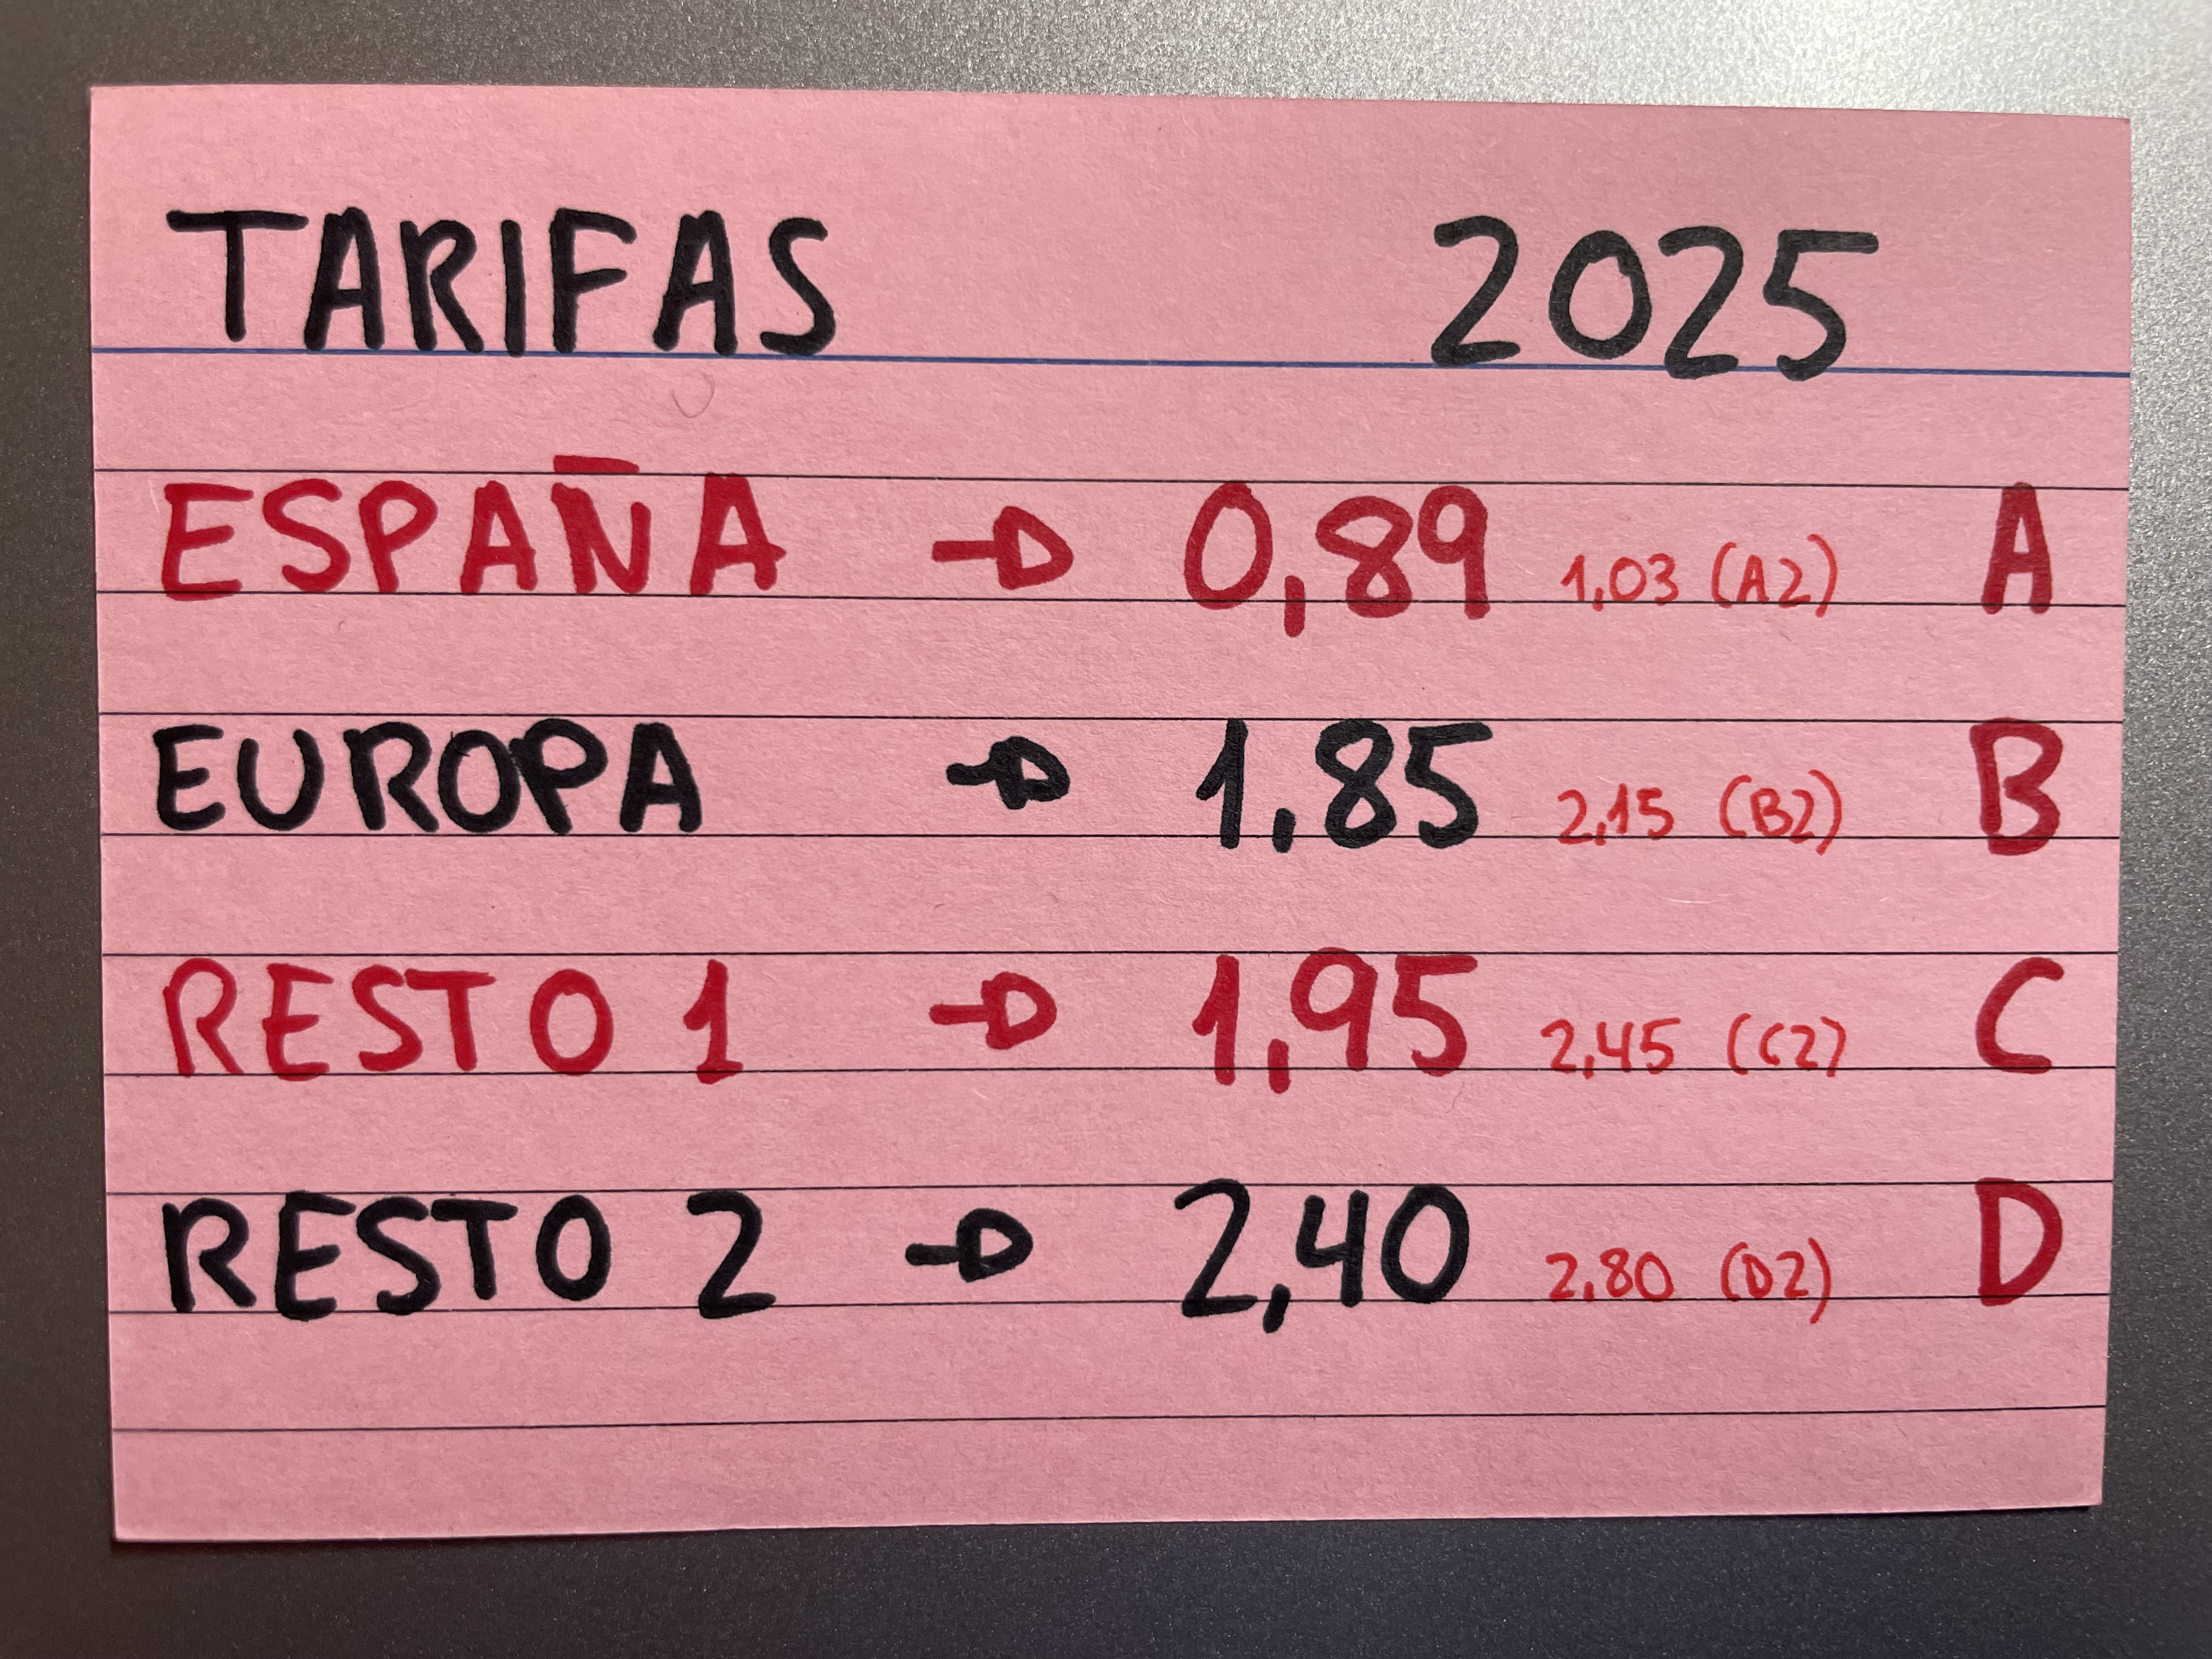 TARIFAS 2025
ESPAÑA → 0,89 1,03 (A2) A
EUROPA → 1,85 2,15 (B2) B
RESTO 1 → 1,95 2,45 (C2) C
RESTO 2 → 2,40 2,80 (D2) D